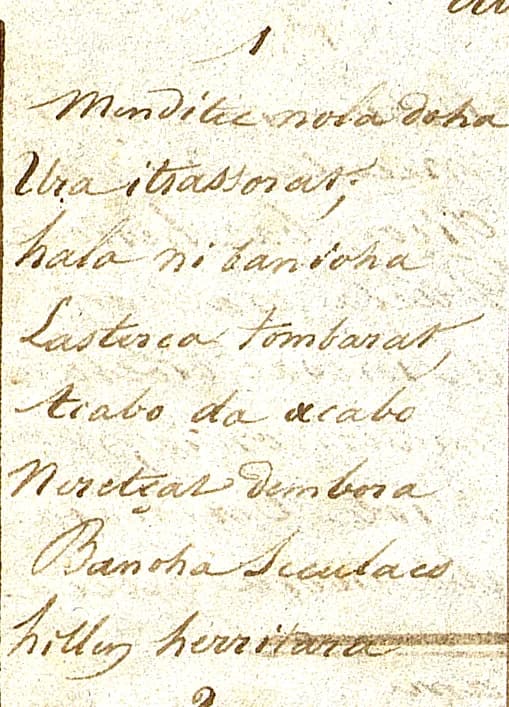 1
Menditic nola doha
Ura itsassorat,
hala ni banioha
Lasterca tombarat,
Aciabo da acabo
Neretçat dembora
Banoha Seculaco
hillen herritara
2